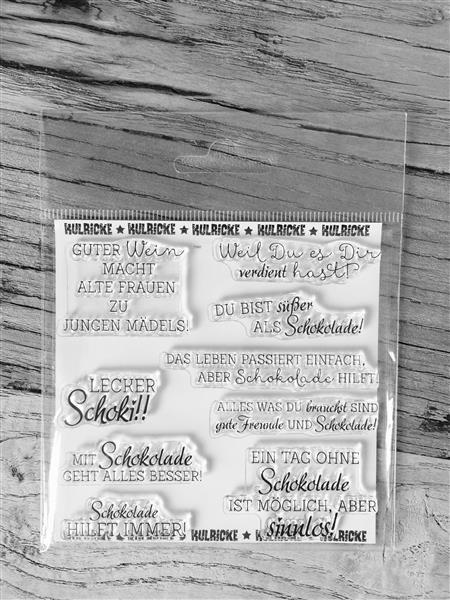 KULRICKE ★ KULRICKE ★ KULRICKE ★ KULRICKE ★ KULRICKE
GUTER Wein
MACHT
ALTE FRAUEN
ZU
JUNGEN MÄDELS!
Weil Du es Dir
verdient hast!
DU BIST süßer
ALS Schokolade!
DAS LEBEN PASSIERT EINFACH,
ABER Schokolade HILFT.
LECKER
Schoki!!
ALLES WAS DU brauchst SIND
gute Freunde UND Schokolade!
MIT Schokolade
GEHT ALLES BESSER!
EIN TAG OHNE
Schokolade
IST MÖGLICH, ABER
sinnlos!
Schokolade
HILFT IMMER!
KULRICKE ★ KULRICKE ★ KULRICKE